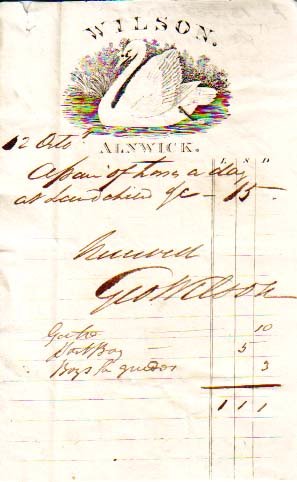 WILSON.
ALNWICK.
12 Octo
£ S D
A pair of horses a day
at &c - 15 -
Received
Geo Wilson
10
Post Boy 5
Boys 3
1 1 1